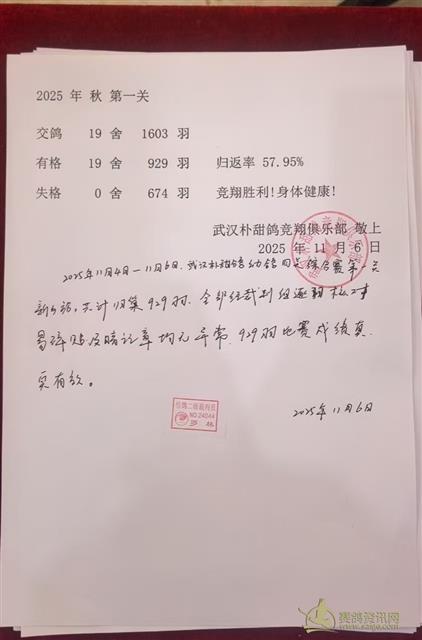 2025 年 秋 第一关
交鸽 19 舍 1603 羽
有格 19 舍 929 羽 归返率 57.95%
失格 0 舍 674 羽 竞翔胜利!身体健康!
武汉朴甜鸽竞翔俱乐部 敬上
2025 年 11 月 6 日
2025年11月4日—11月6日,武汉朴甜鸽 第一关
共计归集929羽,全部经裁判组逐羽核对
易碎贴及暗记章均无异常,929羽比赛成绩真
实有效。
信鸽二级裁判员
NO:24044
2025年11月6日
赛鸽资讯网